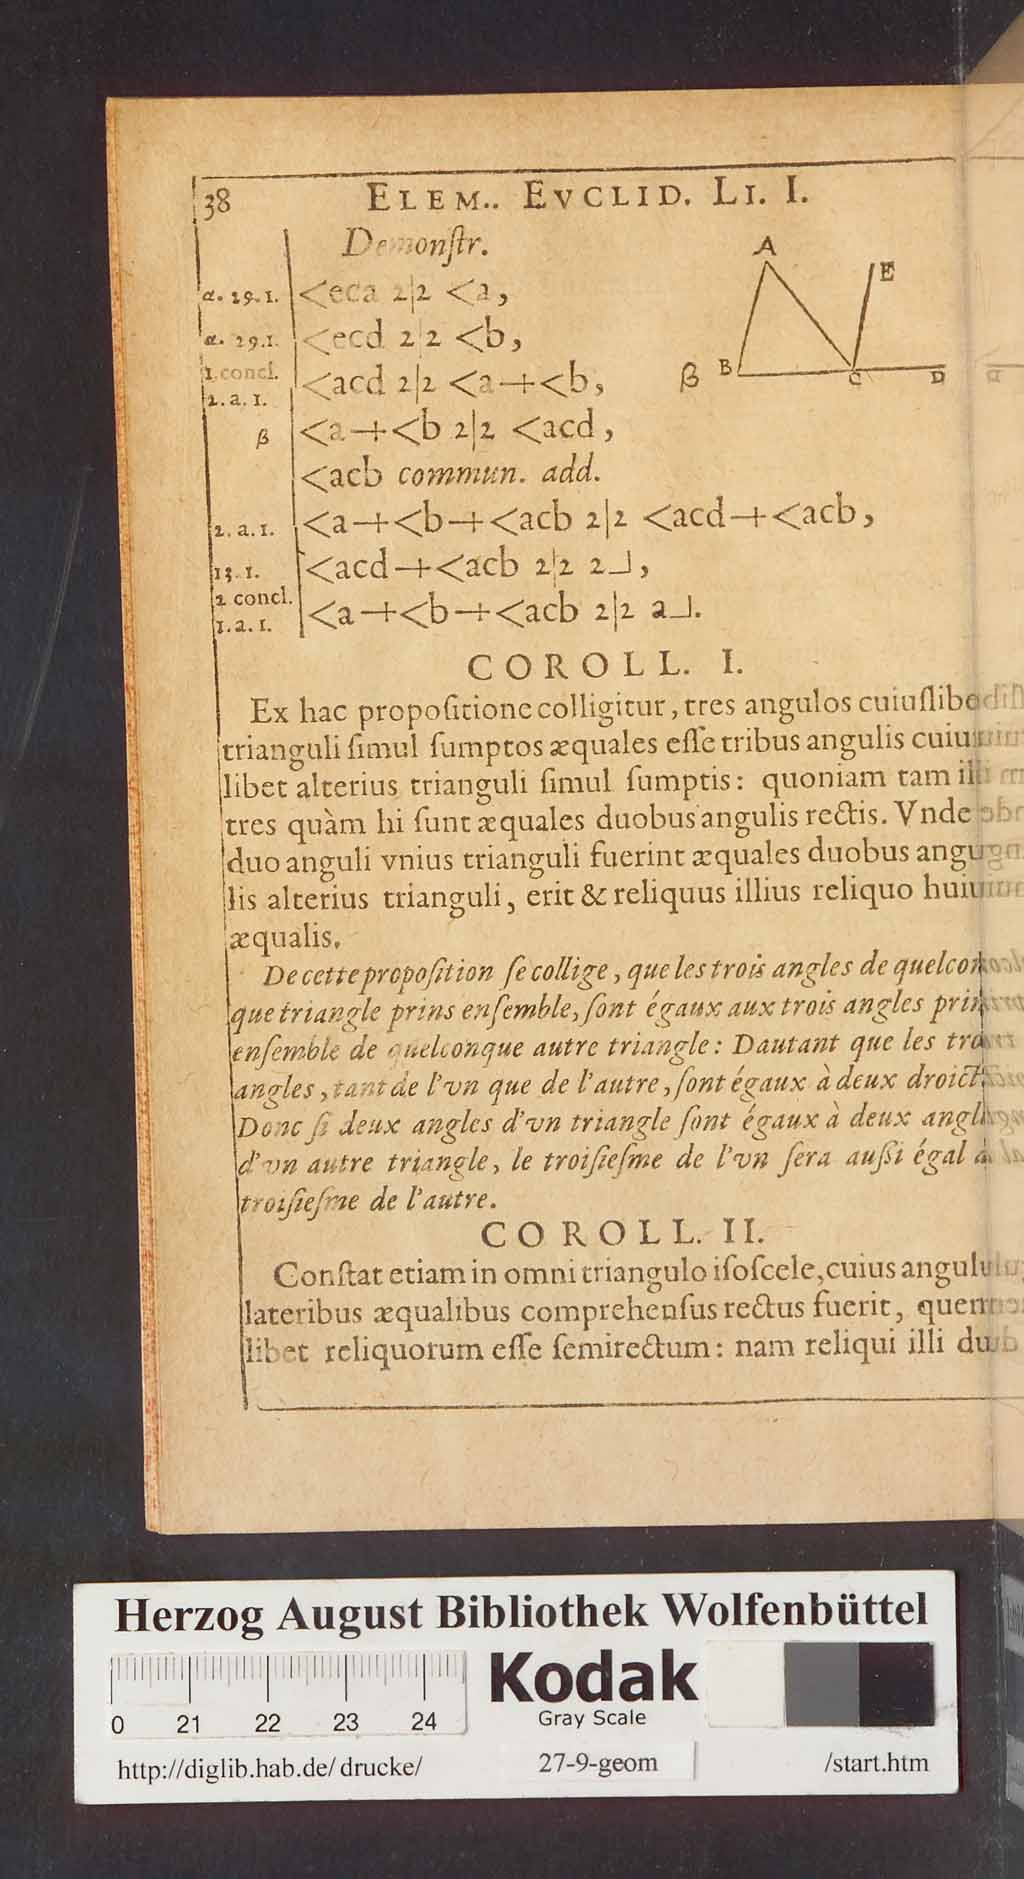 38 ELEM.. EVCLID. LI. I.
Demonſtr.
α. 29. 1. <eca 2|2 <a,
α. 29. 1. <ecd 2|2 <b,
1. concl.
2. a. 1. <acd 2|2 <a+<b,
β <a+<b 2|2 <acd,
<acb commun. add.
2. a. 1. <a+<b+<acb 2|2 <acd+<acb,
13. 1. <acd+<acb 2|2 2⅃,
2 concl.
1. a. 1. <a+<b+<acb 2|2 2⅃.
A
E
β B C D
COROLL. I.
Ex hac propoſitione colligitur, tres angulos cuiuſlibe
trianguli ſimul ſumptos æquales eſſe tribus angulis cuiu
libet alterius trianguli ſimul ſumptis: quoniam tam illi
tres quàm hi ſunt æquales duobus angulis rectis. Vnde
duo anguli vnius trianguli fuerint æquales duobus angu
lis alterius trianguli, erit & reliquus illius reliquo huiu
æqualis.
De cette propoſition ſe collige, que les trois angles de quelcon
que triangle prins enſemble, ſont égaux aux trois angles prin
enſemble de quelconque autre triangle: Dautant que les tro
angles, tant de l'vn que de l'autre, ſont égaux à deux droict
Donc ſi deux angles d'vn triangle ſont égaux à deux angl
d'vn autre triangle, le troiſieſme de l'vn ſera auſſi égal à
troiſieſme de l'autre.
COROLL. II.
Conſtat etiam in omni triangulo iſoſcele, cuius angulu
lateribus æqualibus comprehenſus rectus fuerit, quem
libet reliquorum eſſe ſemirectum: nam reliqui illi du
Herzog August Bibliothek Wolfenbüttel
0 21 22 23 24
Kodak
Gray Scale
http://diglib.hab.de/drucke/ 27-9-geom /start.htm